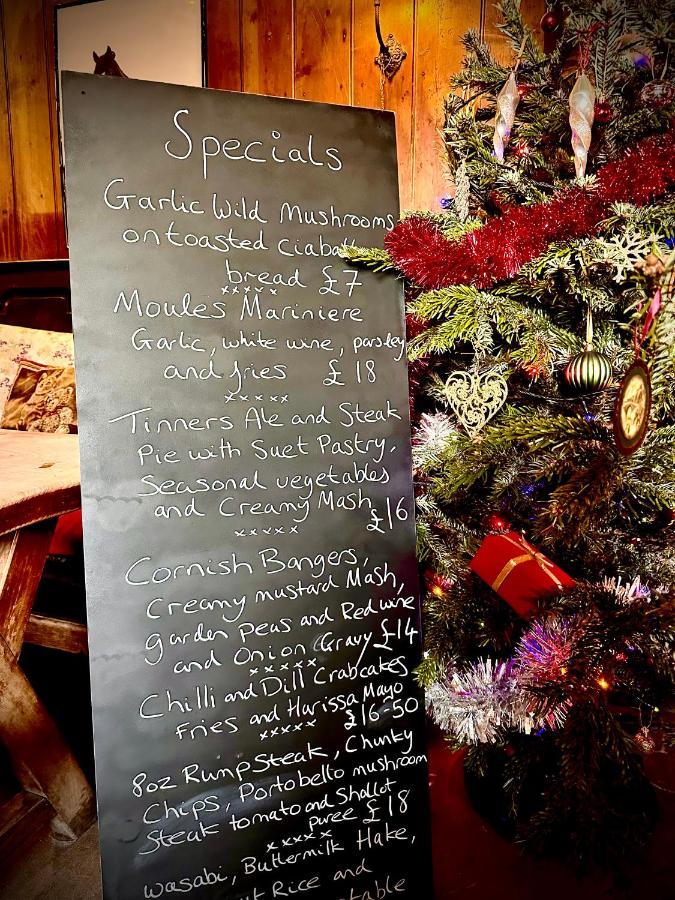 Specials
Garlic Wild Mushrooms
on toasted ciabatt
bread £7
xxxxx
Moules Mariniere
Garlic, white wine, parsley
and fries £18
xxxxx
Tinners Ale and Steak
Pie with Suet Pastry,
Seasonal vegetables
and Creamy Mash £16
xxxxx
Cornish Bangers,
Creamy mustard Mash,
garden Peas and Red wine
and Onion Gravy £14
xxxxx
Chilli and Dill Crabcakes
Fries and Harissa Mayo
xxxxx £16-50
8oz Rump Steak, Chunky
Chips, Portobello mushroom
Steak tomato and Shallot
puree £18
xxxxx
Wasabi, Buttermilk Hake,
Rice and